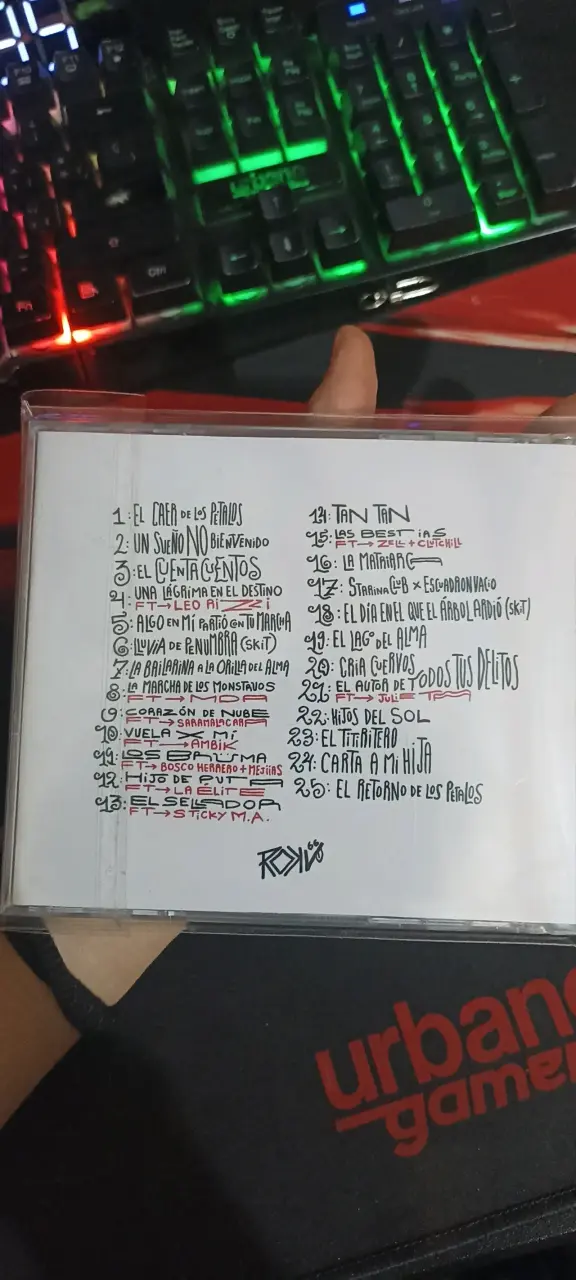 urbano
1: EL CAER DE LOS PÉTALOS
2: UN SUEÑO NO BIENVENIDO
3: EL CUENTACUENTOS
4: UNA LÁGRIMA EN EL DESTINO
FT→LEO RIZZI
5: ALGO EN MÍ PARTIÓ CON TU MARCHA
6: LLUVIA DE PENUMBRA (SKIT)
7: LA BAILARINA A LA ORILLA DEL ALMA
8: LA MARCHA DE LOS MONSTRUOS
FT→MDA
9: CORAZÓN DE NUBE
FT→SARAMALACARA
10: VUELA X MÍ
FT→AMBIK
11: LOS BAUMA
FT→BOSCO HERRERO + MEJIIAS
12: HIJO DE PUTA
FT→LA ÉLITE
13: EL SELLADOR
FT→STICKY M.A.
14: TAN TAN
15: LAS BESTIAS
FT→ZELL + CLUTCHILL
16: LA MATRIARCA
17: STARINACUB X ESCUADRON VACIO
18: EL DÍA EN EL QUE EL ÁRBOL ARDIÓ (SKIT)
19: EL LAGO DEL ALMA
20: CRIA CUERVOS
21: EL AUTOR DE TODOS TUS DELITOS
FT→JULIE
22: HIJOS DEL SOL
23: EL TITIRITERO
24: CARTA A MI HIJA
25: EL RETORNO DE LOS PÉTALOS
urbano
gamer